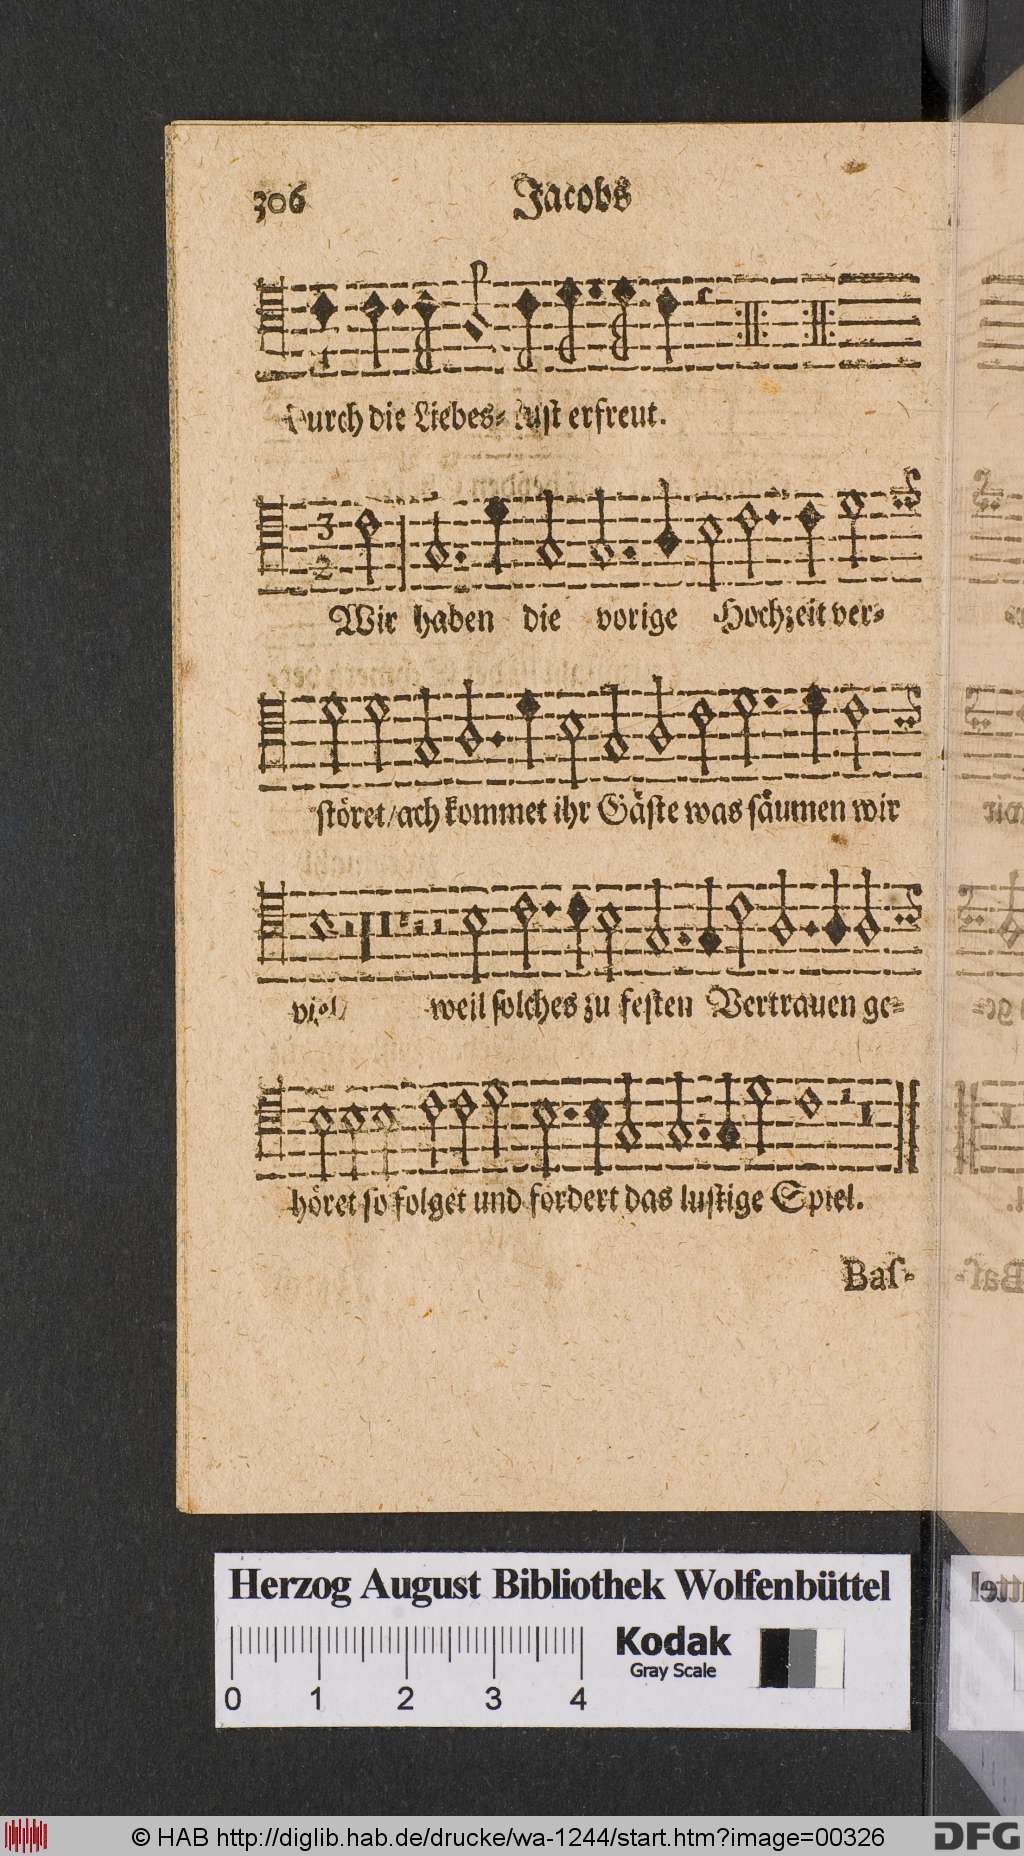 306 Jacobs
Durch die Liebes- Lust erfreut.
3
2
Wir haben die vorige Hochzeit ver-
störet/ach kommet ihr Gäste was säumen wir
viel/ weil solches zu festen Vertrauen ge-
höret so folget und fordert das lustige Spiel.
Baſ-
Herzog August Bibliothek Wolfenbüttel
Kodak
Gray Scale
0 1 2 3 4
© HAB http://diglib.hab.de/drucke/wa-1244/start.htm?image=00326
DFG